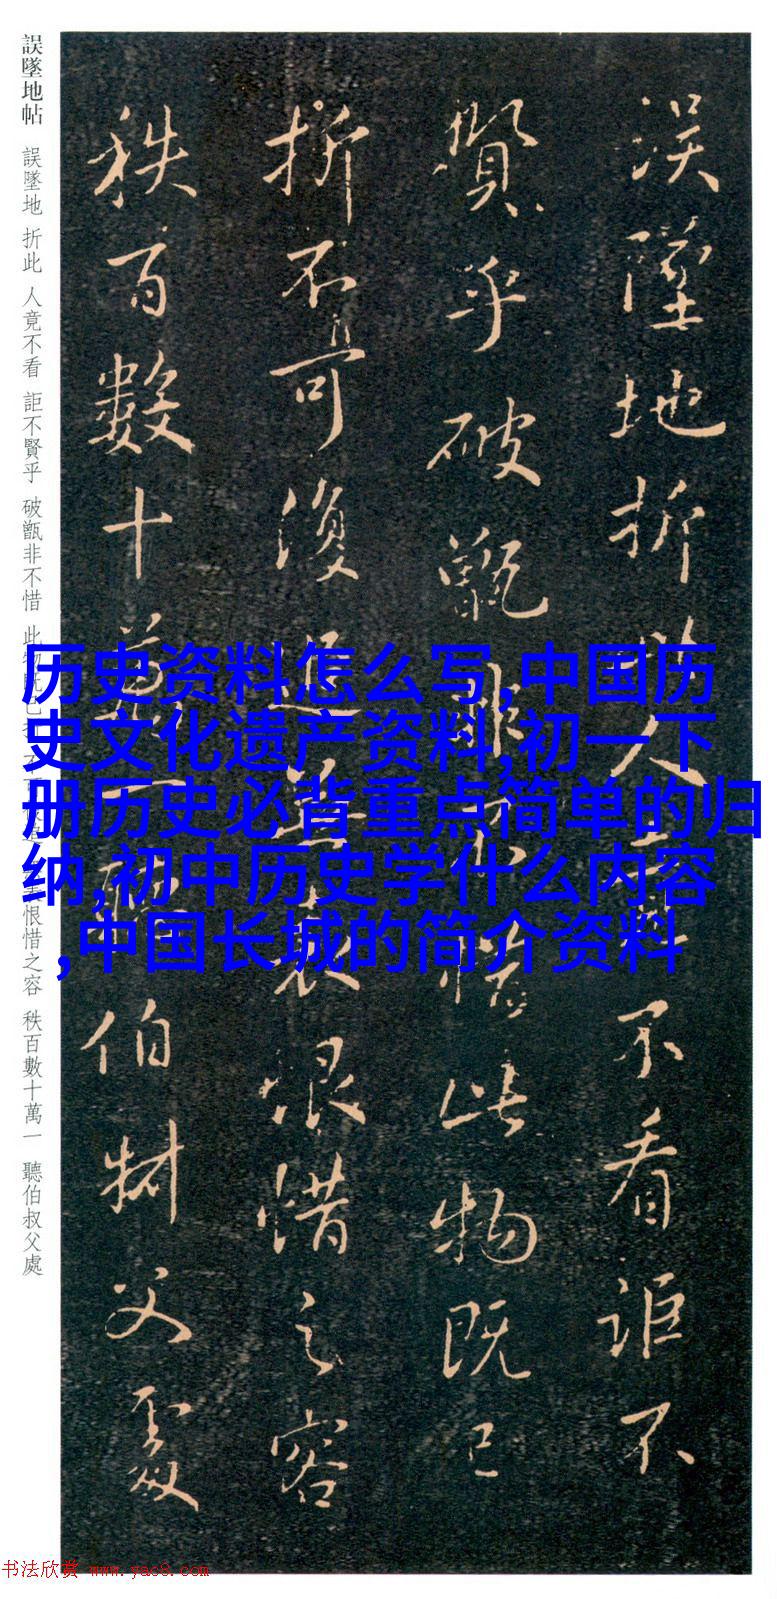 誤墜地帖 誤墜地 折此 人竟不看 詎不賢乎 破甑非不惜 此物既已 恨惜之容 秩百數十萬一 聽伯叔父處
誤墜地折此人不看詎不
賢乎破甑非不惜此物既已
折不可復追恨惜之容
秩百數十萬一聽伯叔父處
历史资料怎么写,中国历
史文化遗产资料,初一下
册历史必背重点简单的归
纳,初中历史学什么内容
,中国长城的简介资料
书法欣赏 www.yac8.com